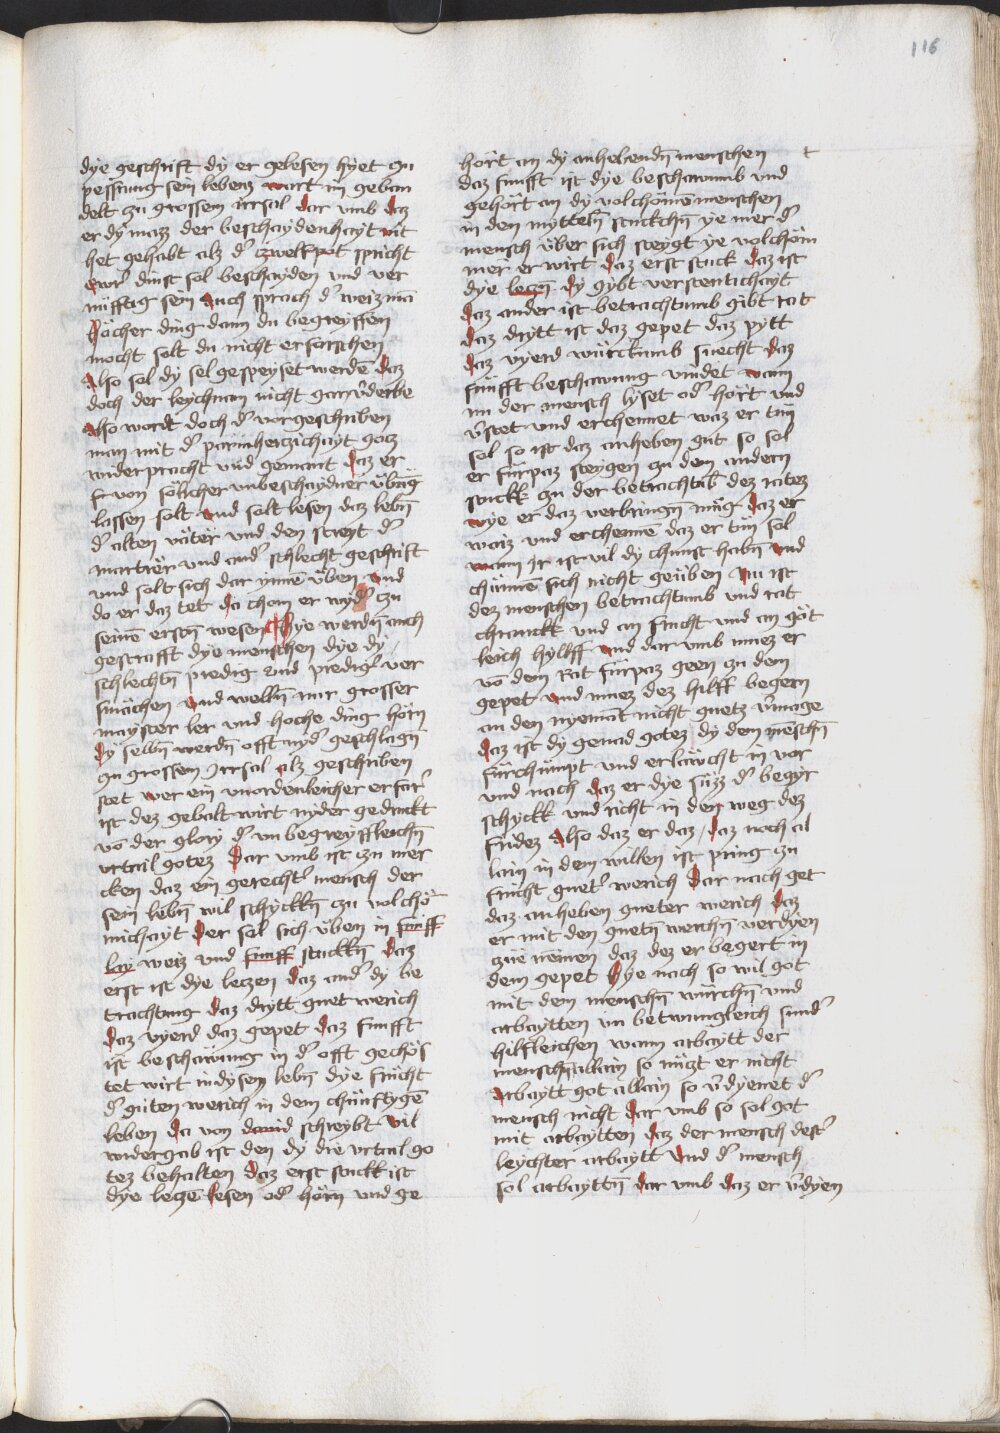 116
dye geschrift dy er gelesen hyet zu
pessrung sein lebenz wart im geban
delt zu grossem irrsal dar vmb daz
er dy mazz der beschaydenhayt nit
het gehabt alz d' zwelfpot spricht
ewr dinst sol beschayden vnd ver
nüfftig sein Auch sprach d' weiz mā
Höcher ding dann du begreyffen
mocht solt du nicht erforschen
Also sol dy sel gespeyset werdē daz
doch der leychnam nicht gar v'derbe
Also wardt doch d' vorgeschriben
man mit d' parmherzichayt gotz
widerpracht vnd gemant daz er
fr von sölicher vnbeschaydner vbūg
lassen solt vnd solt lesen daz lebn̄
d' alten väter vnd den streyt d'
martrer vnd and' schlecht geschrift
vnd solt sich dar ynnē vben vnd
do er daz tet da chom er wyd' zu
seinē erstn̄ wesen Hye werdn̄ auch
gestrafft dye menschen dye dy
schlechtn̄ predig vnd predig' ver
smächen vnd welln̄ nur grosser
mayster ler vnd hoche ding hörn
Dy selbn̄ werdn̄ offt nyd' geschlagn̄
zu grossem Irrsal alz geschriben
stet wer ein vnordenleicher erfar'
ist dez gebalt wirt nyder gedruckt
vō der glory d' vn begreyffleichn̄
vrtail gotez Dar vmb ist zu mer
cken daz ein gerecht' mensch der
sein lebn̄ wil schyckn̄ zu volchö
michayt Der sol sich vben in fünff
lay weiz vnd fünff stuckn̄ Daz
erst ist dye leczen Daz and' dy be
trachtung Daz drytt guet werich
Daz vyerd daz gepet Daz fünfft
ist beschawung in d' offt gechös
tet wirt in dysem lebn̄ dye frücht
d' guten werich in dem chünftygē
leben Da von dauid schreybt vil
widergab ist den dy die vrtail go
tez behalten Daz erst stuck ist
dye leczē lesen od' hörn vnd ge
hört an dy anhebendn̄ menschen
daz fünfft ist dye beschawmb vnd
gehört an dy volchömē menschen
in den mytteln̄ stuckchn̄ ye mer d'
mensch vber sich steygt ye volchöm
mer er wirt Daz erst stuck Daz ist
dye leczn̄ Dy gybt verstentichayt
Daz ander ist betrachtumb gibt rat
Daz drytt ist daz gepet daz pytt
Daz vyerd würchumb suecht Daz
fünfft beschawung vindet wann
nu der mensch lyset od' hört vnd
v'stet vnd erchennet waz er tun
sol so ist daz anheben gut so sol
er fürpaz steygen zu dem andern
stuckk zu der betrachtūb dez ratez
wye er daz verbringn̄ müg Daz er
waiz vnd erchennē daz er tün sol
wann Ir ist vil dy chunst habn̄ vnd
chünnē sich nicht geüben Nu ist
dez menschen betrachtumb vnd rat
chranckk vnd an frücht vnd an göt
leich hylff vnd dar vmb muez er
vō dem Rat fürpaz geen zu dem
gepet vnd muez dez hilff begern
an den nyemāt nicht guetz v'mage
Daz ist dy genad gotez dy dem mēschn̄
fürchümpt vnd erläücht in vor
vnd nach Daz er dye süzz d' begyr
schyckk vnd richt in den weg dez
fridez Also daz er daz / daz noch al
lain in dem willen ist pring zu
frücht guet' werich Dar nach get
daz anheben gueter werich Daz
er mit den guetn̄ werchn̄ verdyen
zue nemen daz dez er begert in
dem gepet Hye nach so wil got
mit dem menschn̄ würchn̄ vnd
arbaytten vn betwungleich sund'
hilfleichen wann arbaytt der
mensch allain so nüczt er nicht
Arbaytt got allain so v'dyenet d'
mensch nicht Dar vmb so sol got
mit arbaytten Daz der mensch dest'
leychter arbaytt Vnd d' mensch
sol arbayttn̄ Dar vmb daz er v'dyen